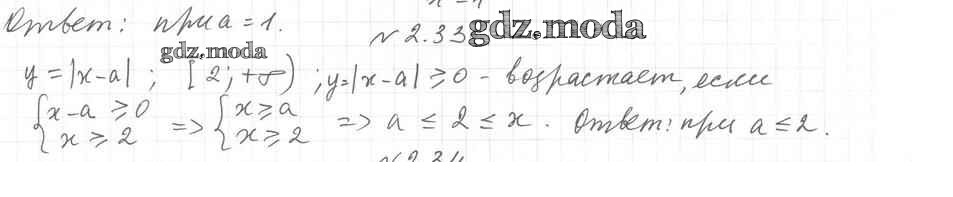 Ответ: при a = 1.
№ 2.33 gdz.moda
gdz.moda
y = |x-a| ; [2; +∞) ; y = |x-a| ⩾ 0 - возрастает, если
{x-a ⩾ 0 => {x ⩾ a => a ≤ 2 ≤ x. Ответ: при a ≤ 2.
x ⩾ 2 x ⩾ 2